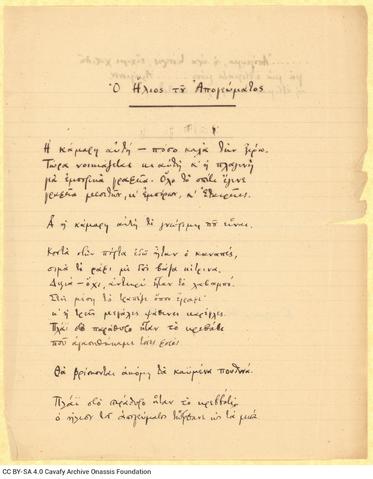 Ὁ Ἥλιος τοῦ Ἀπογεύματος
Ἡ κάμαρη αὐτὴ — πόσο καλὰ τὴν ξέρω.
Τώρα νοικιάζεται κι αὐτὴ κ' ἡ πλαγινὴ
γιὰ ἐμπορικὰ γραφεῖα. Ὅλο τὸ σπίτι ἔγινε
γραφεῖα μεσιτῶν, κ' ἐμπόρων, κ' Ἑταιρεῖες.
Ἆ ἡ κάμαρη αὐτὴ τί γνώριμη ποῦ εἶναι.
Κοντὰ στὴν πόρτα ἐδῶ ἦταν ὁ καναπές,
σιμὰ τὸ ράφι μὲ δυὸ βάζα κίτρινα.
Δεξιὰ — ὄχι, ἀντικρὺ ἦταν τὸ
Στὴ μέση τὸ τραπέζι ὅπου ἔγραφε·
κ' ἡ τρεῖς μεγάλες ψάθινες καρέγλες.
Πλάϊ στὸ παράθυρο ἦταν τὸ κρεββάτι
ποῦ ἀγαπηθήκαμε τόσες φορές.
Θὰ βρίσκονται ἀκόμη τὰ καϋμένα πουθενά.
Πλάϊ στὸ παράθυρο ἦταν τὸ κρεββάτι·
ὁ ἥλιος τοῦ ἀπογεύματος τὤφθανε ὡς τὰ μισά.
CC BY-SA 4.0 Cavafy Archive Onassis Foundation